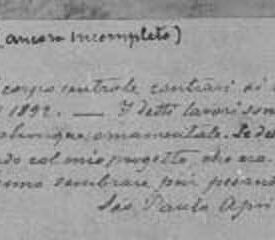 (ancora incompleto)
corpo centrale contrari ai
1892. — I detti lavori son
ornamentale. Le de
do col mio progetto, che era
sembrare più pesan
Sao Paulo Apri